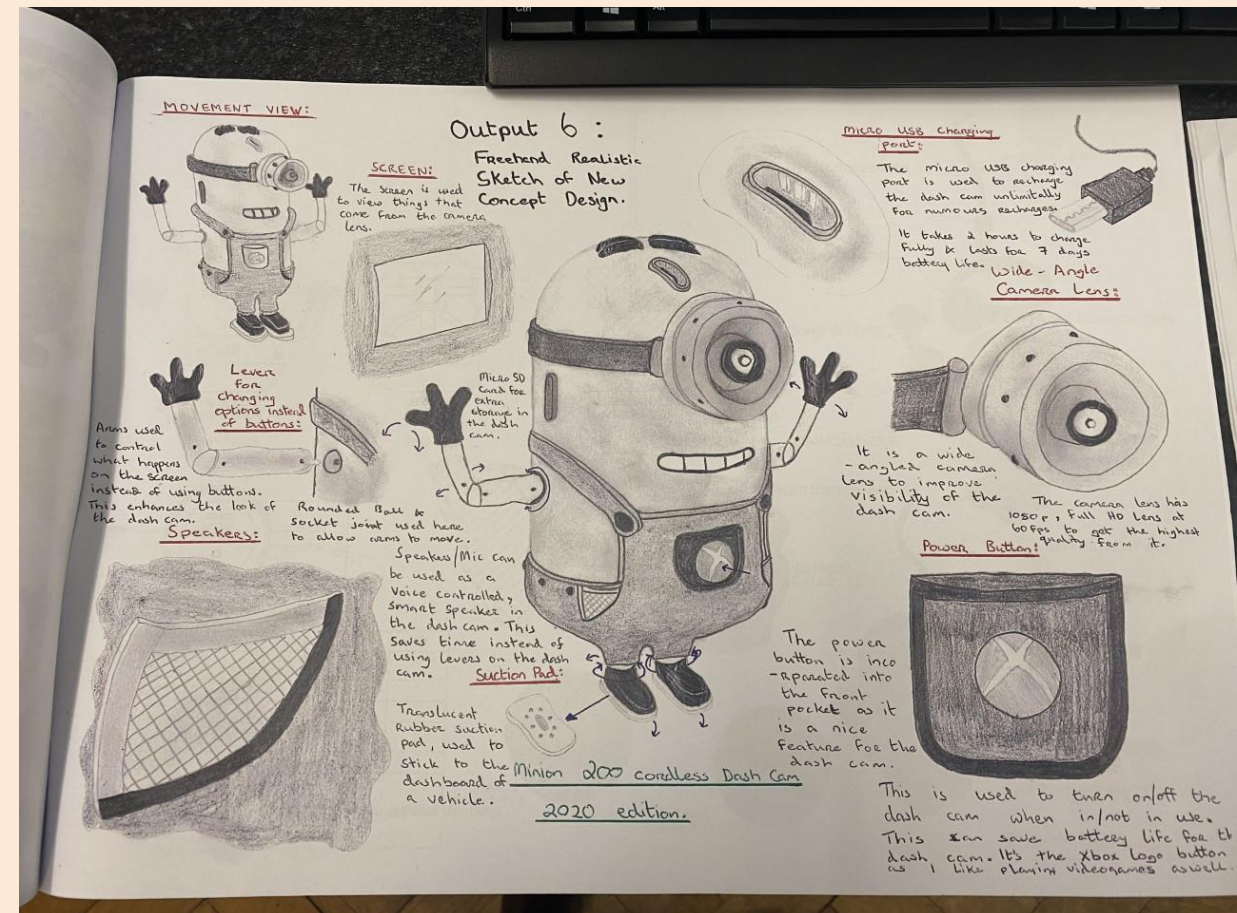 Ctrl
Alt
MOVEMENT VIEW:
Output 6 :
Freehand Realistic
Sketch of New
Concept Design.
SCREEN:
The screen is used
to view things that
come from the camera
lens.
Micro USB Charging
port:
The micro USB charging
port is used to recharge
the dash cam unlimitally
for numours recharges.
It takes 2 hours to charge
fully & lasts for 7 days
battery life.
Wide - Angle
Camera Lens:
Lever
for
changing
options instead
of buttons:
Arms used
to control
what happens
on the screen
instead of using buttons.
This enhances the look of
the dash cam.
Rounded Ball &
socket joint used here
to allow arms to move.
Micro SD
Card for
extra
storage in
the dash
cam.
It is a wide
-angled camera
lens to improve
visibility of the
dash cam.
The camera lens has
1080p, Full HD Lens at
60fps to get the highest
quality from it.
Speakers:
Speakers/Mic can
be used as a
Voice controlled,
smart speaker in
the dash cam. This
saves time instead of
using levers on the dash
cam.
Suction Pad:
Translucent
Rubber suction
pad, used to
stick to the
dashboard of
a vehicle.
Minion 200 cordless Dash Cam
2020 edition.
Power Button:
The power
button is inco
-rparated into
the front
pocket as it
is a nice
feature for the
dash cam.
This is used to turn on/off the
dash cam when in/not in use.
This can save battery life for th
dash cam. It's the Xbox Logo button
as I like playing videogames aswell.